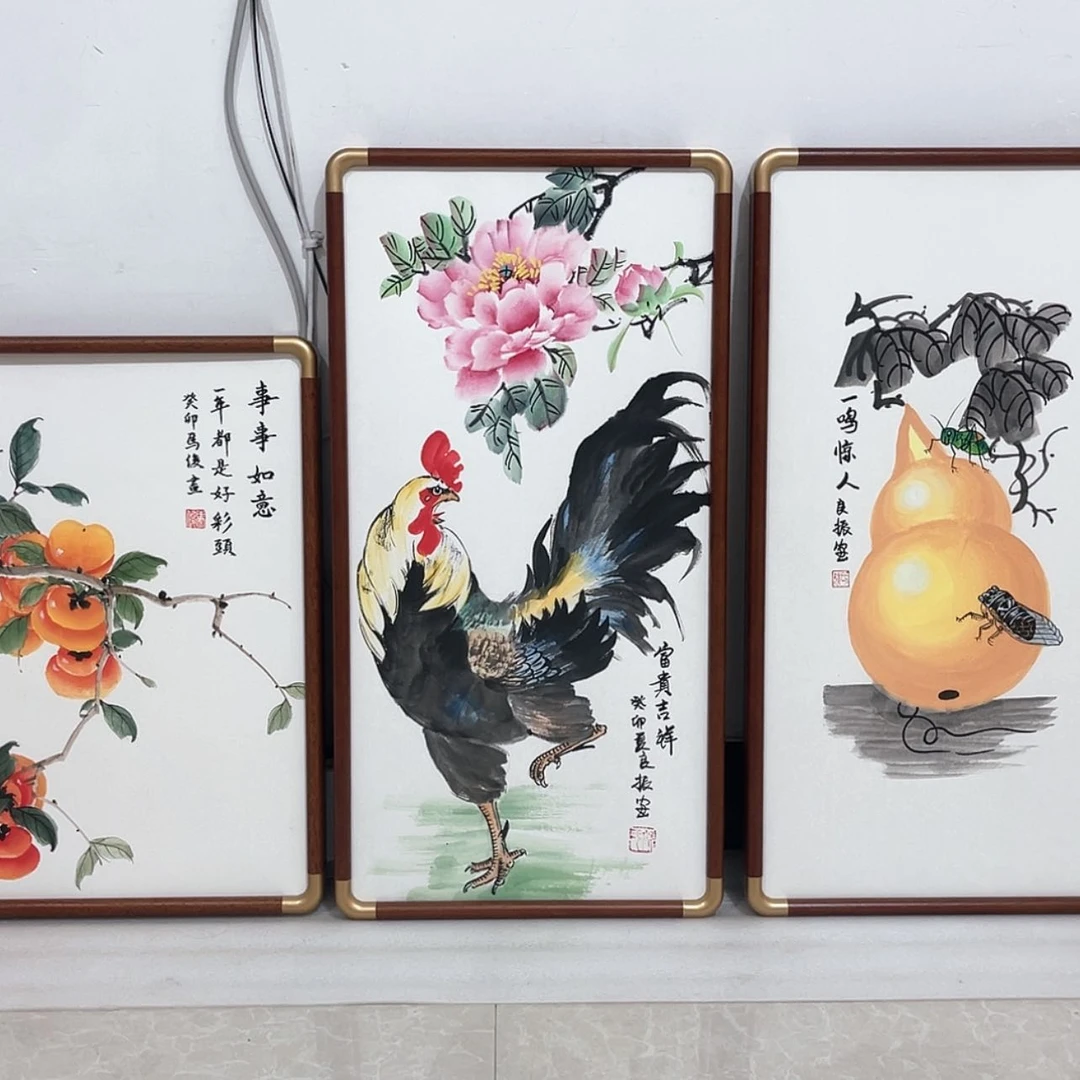 事事如意
一年都是好彩頭
癸卯馬俊畫
富貴吉祥
癸卯夏良振密
一鸣惊人
良振密